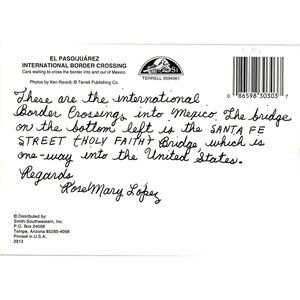 EL PASO/JUÁREZ
INTERNATIONAL BORDER CROSSING
Cars waiting to cross the border into and out of Mexico.
Photos by Ken Raveill, © Terrell Publishing Co.
TERRELL 0594061
0 86598 30303 7
These are the international
Border Crossings into Mexico. The bridge
on the bottom left is the SANTA FE
STREET (HOLY FAITH) Bridge, which is
one-way into the United States.
Regards
RoseMary Lopez
© Distributed by:
Smith-Southwestern, Inc.
P.O. Box 24098
Tempe, Arizona 85285-4098
Printed in U.S.A.
2913